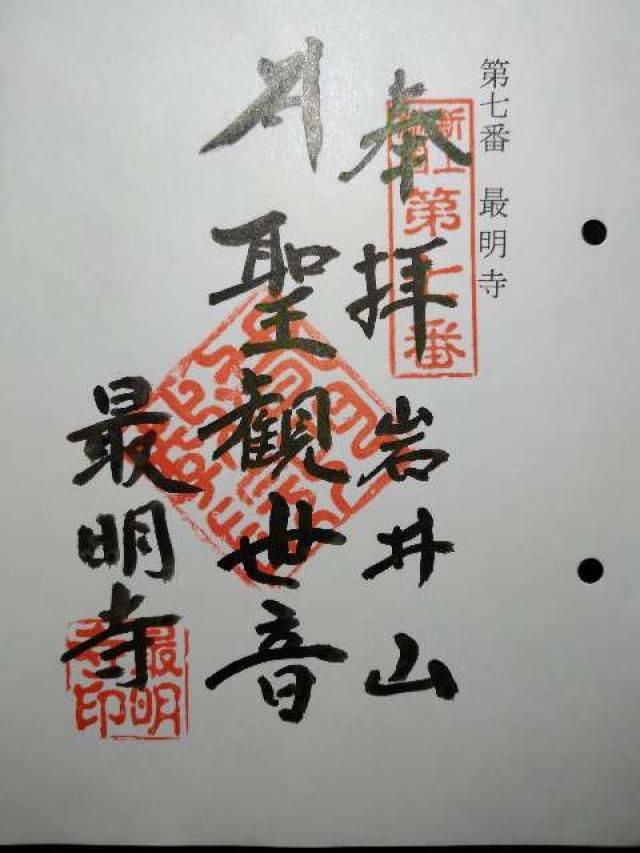 第七番 最明寺
新上
第七番
奉拝 岩井山
聖観世音
最明寺
最明
寺印